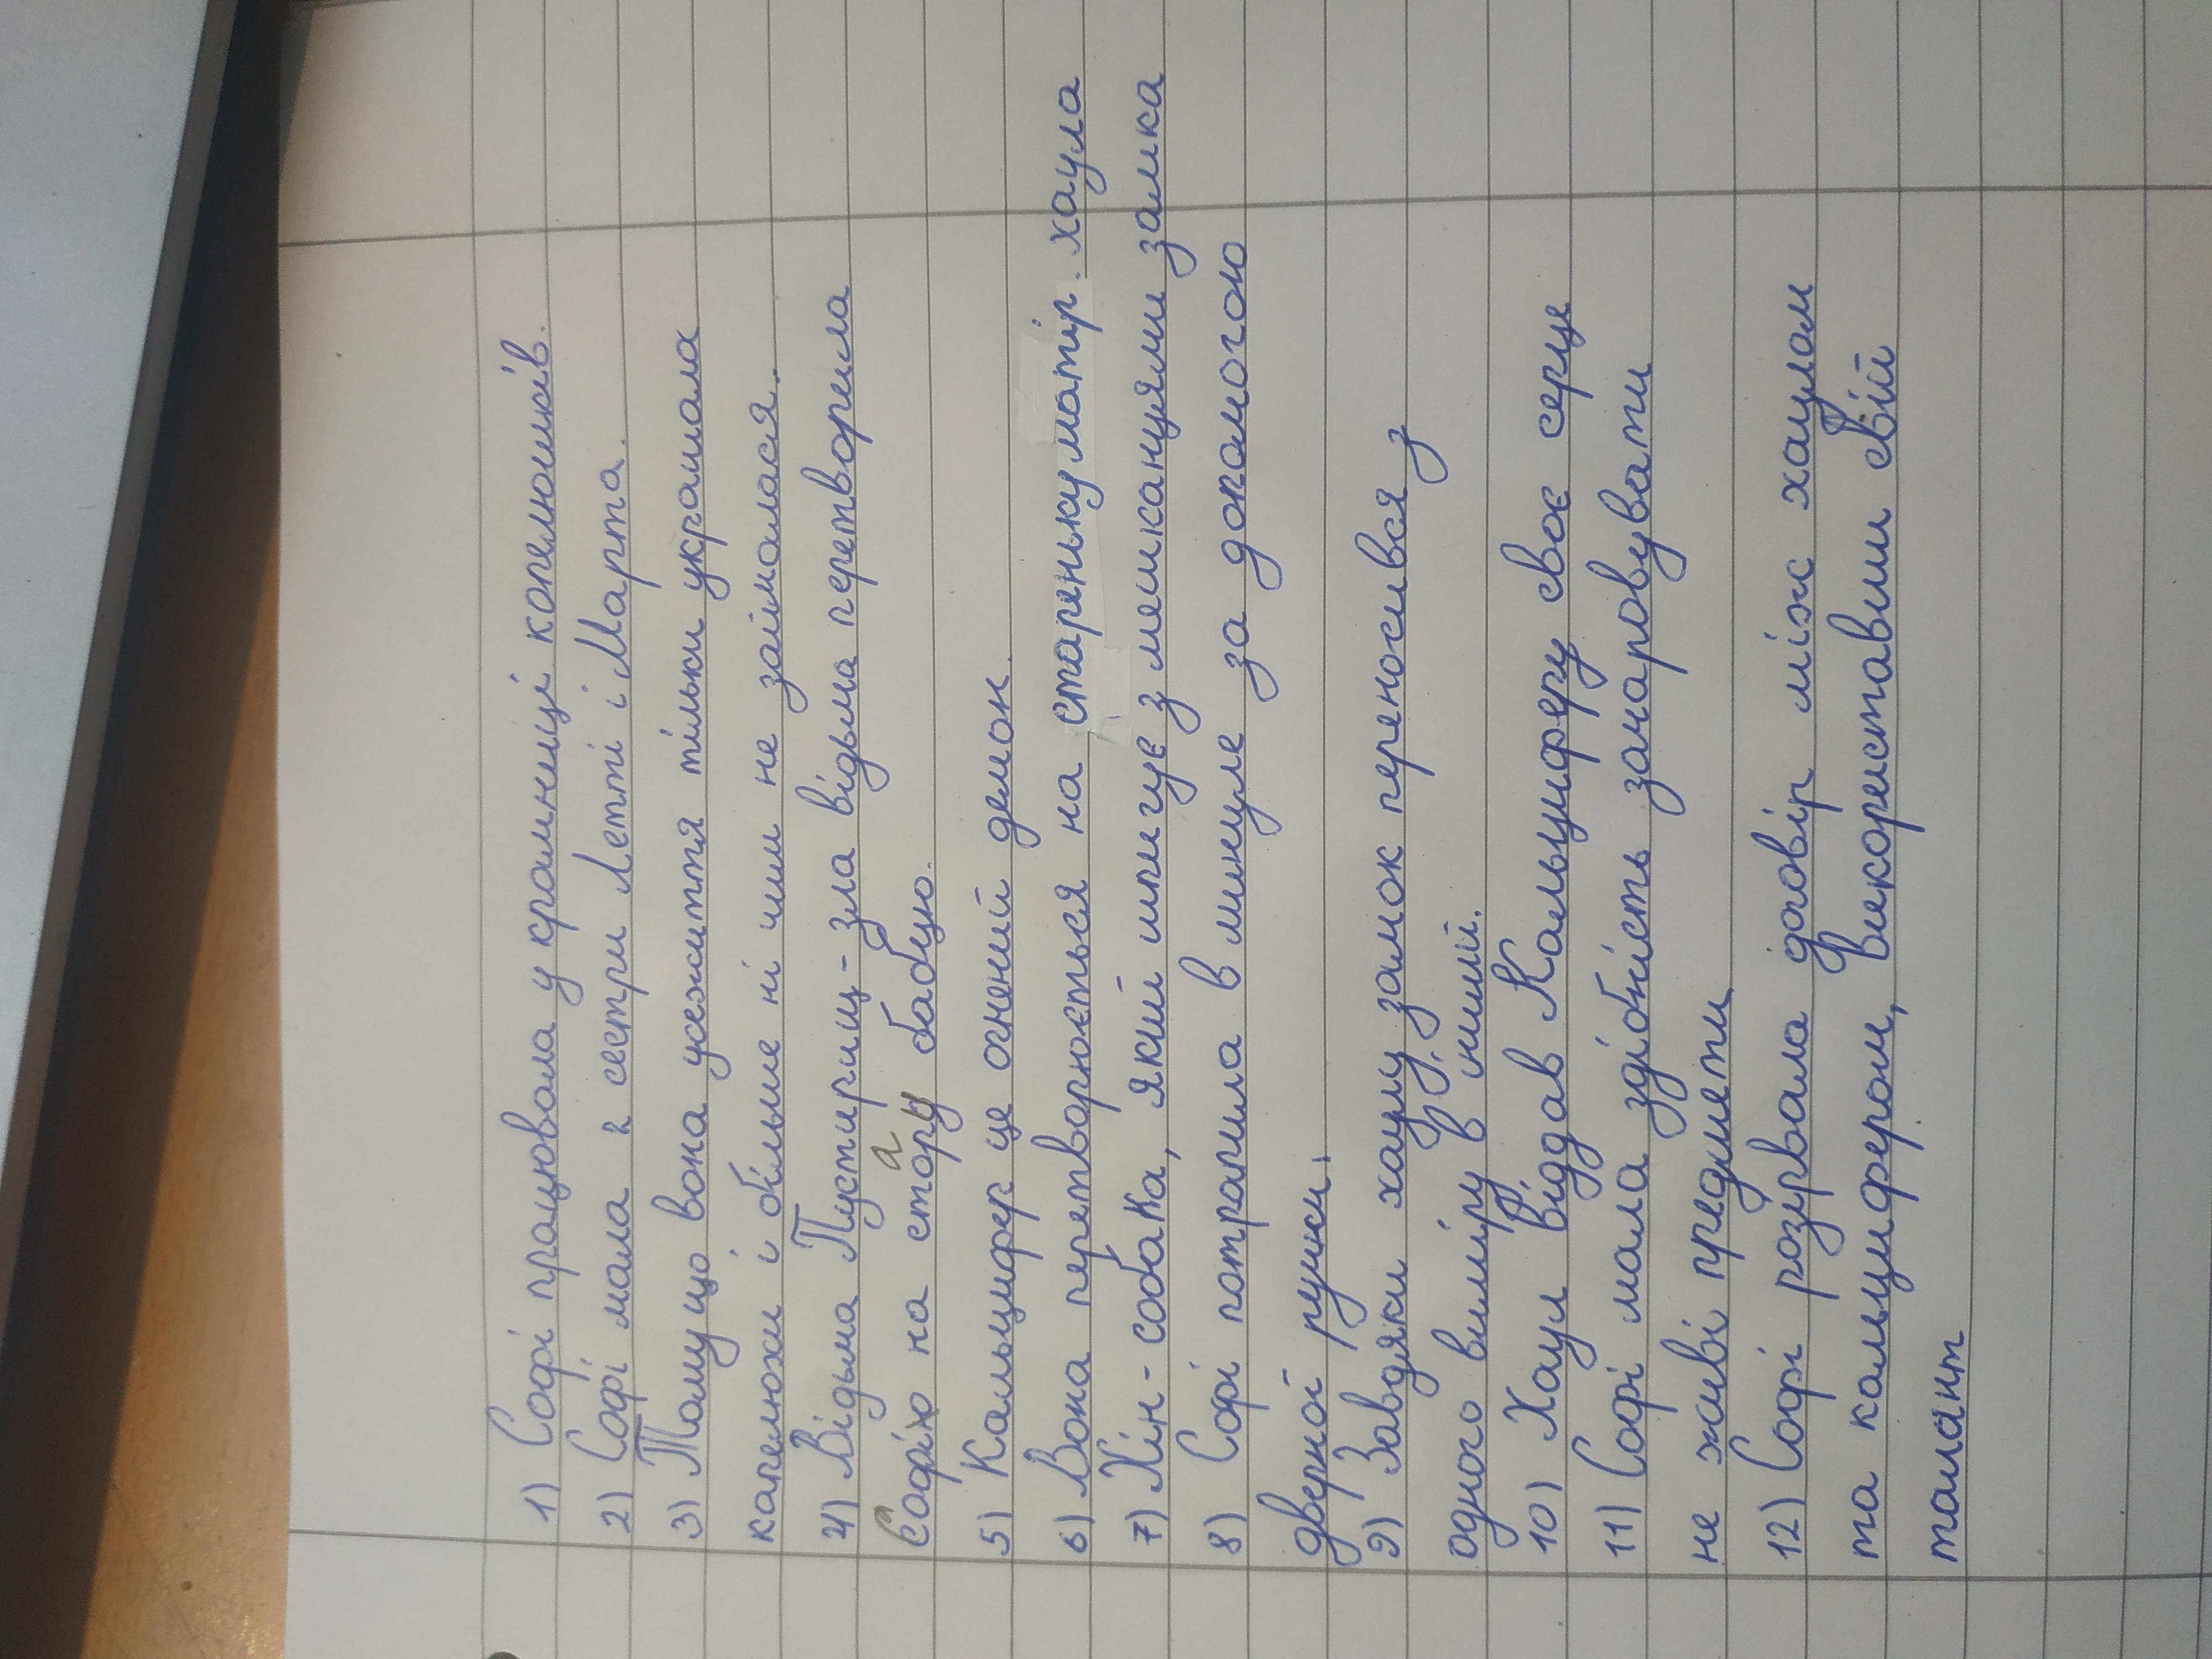 1) Софі працювала у крамниці копелюшків.
2) Софі мала 2 сестри Летті і Марта.
3) Тому що вона усежиття тільки украшала
капелюхи і більше ні чим не займалася.
4) Відьма Пустирищ - зла відьма перетворила
Софію на стору а бабцю.
5) Кальцифер це огнений демон.
6) Вона перетворюється на стареньку матір хаула
7) Хін-собака, який шпигує з мешканцями замка
8) Софі потрапила в минуле за допомогою
дверной ручки.
9) Завдяки хаулу замок переносився з
одного виміру в инший.
10) Хаул віддав Кальциферу своє серце
11) Софі мала здібність зачаровувати
не живі предмети
12) Софі розірвала договір між хаулом
та кальцифером, використавши свій
талант